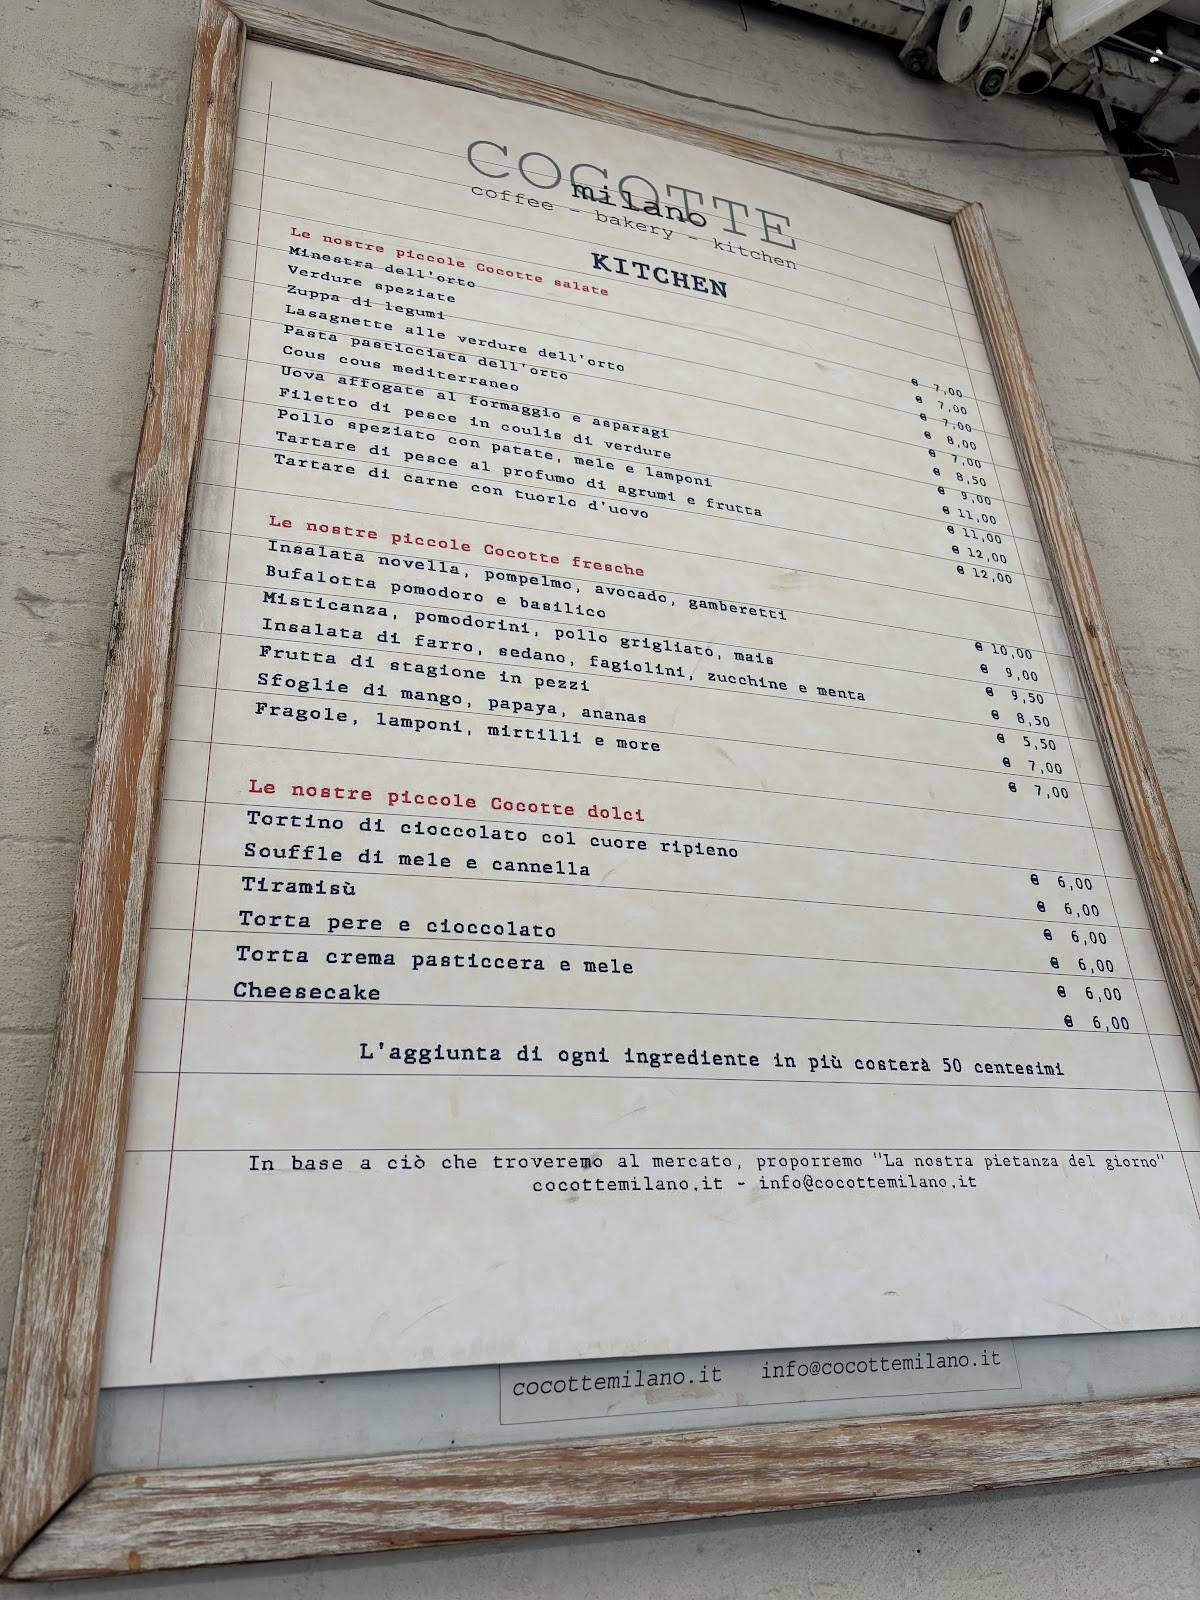 COCOTTE
milano
coffee - bakery - kitchen
KITCHEN
Le nostre piccole Cocotte salate
Minestra dell'orto € 7,00
Verdure speziate € 7,00
Zuppa di legumi € 7,00
Lasagnette alle verdure dell'orto € 8,00
Pasta pasticciata dell'orto € 7,00
Cous cous mediterraneo € 8,50
Uova affogate al formaggio e asparagi € 9,00
Filetto di pesce in coulis di verdure € 11,00
Pollo speziato con patate, mele e lamponi € 11,00
Tartare di pesce al profumo di agrumi e frutta € 12,00
Tartare di carne con tuorlo d'uovo € 12,00
Le nostre piccole Cocotte fresche
Insalata novella, pompelmo, avocado, gamberetti € 10,00
Bufalotta pomodoro e basilico € 9,00
Misticanza, pomodorini, pollo grigliato, mais € 9,50
Insalata di farro, sedano, fagiolini, zucchine e menta € 8,50
Frutta di stagione in pezzi € 5,50
Sfoglie di mango, papaya, ananas € 7,00
Fragole, lamponi, mirtilli e more € 7,00
Le nostre piccole Cocotte dolci
Tortino di cioccolato col cuore ripieno € 6,00
Souffle di mele e cannella € 6,00
Tiramisù € 6,00
Torta pere e cioccolato € 6,00
Torta crema pasticcera e mele € 6,00
Cheesecake € 6,00
L'aggiunta di ogni ingrediente in più costerà 50 centesimi
In base a ciò che troveremo al mercato, proporremo "La nostra pietanza del giorno"
cocottemilano.it - info@cocottemilano.it
cocottemilano.it info@cocottemilano.it